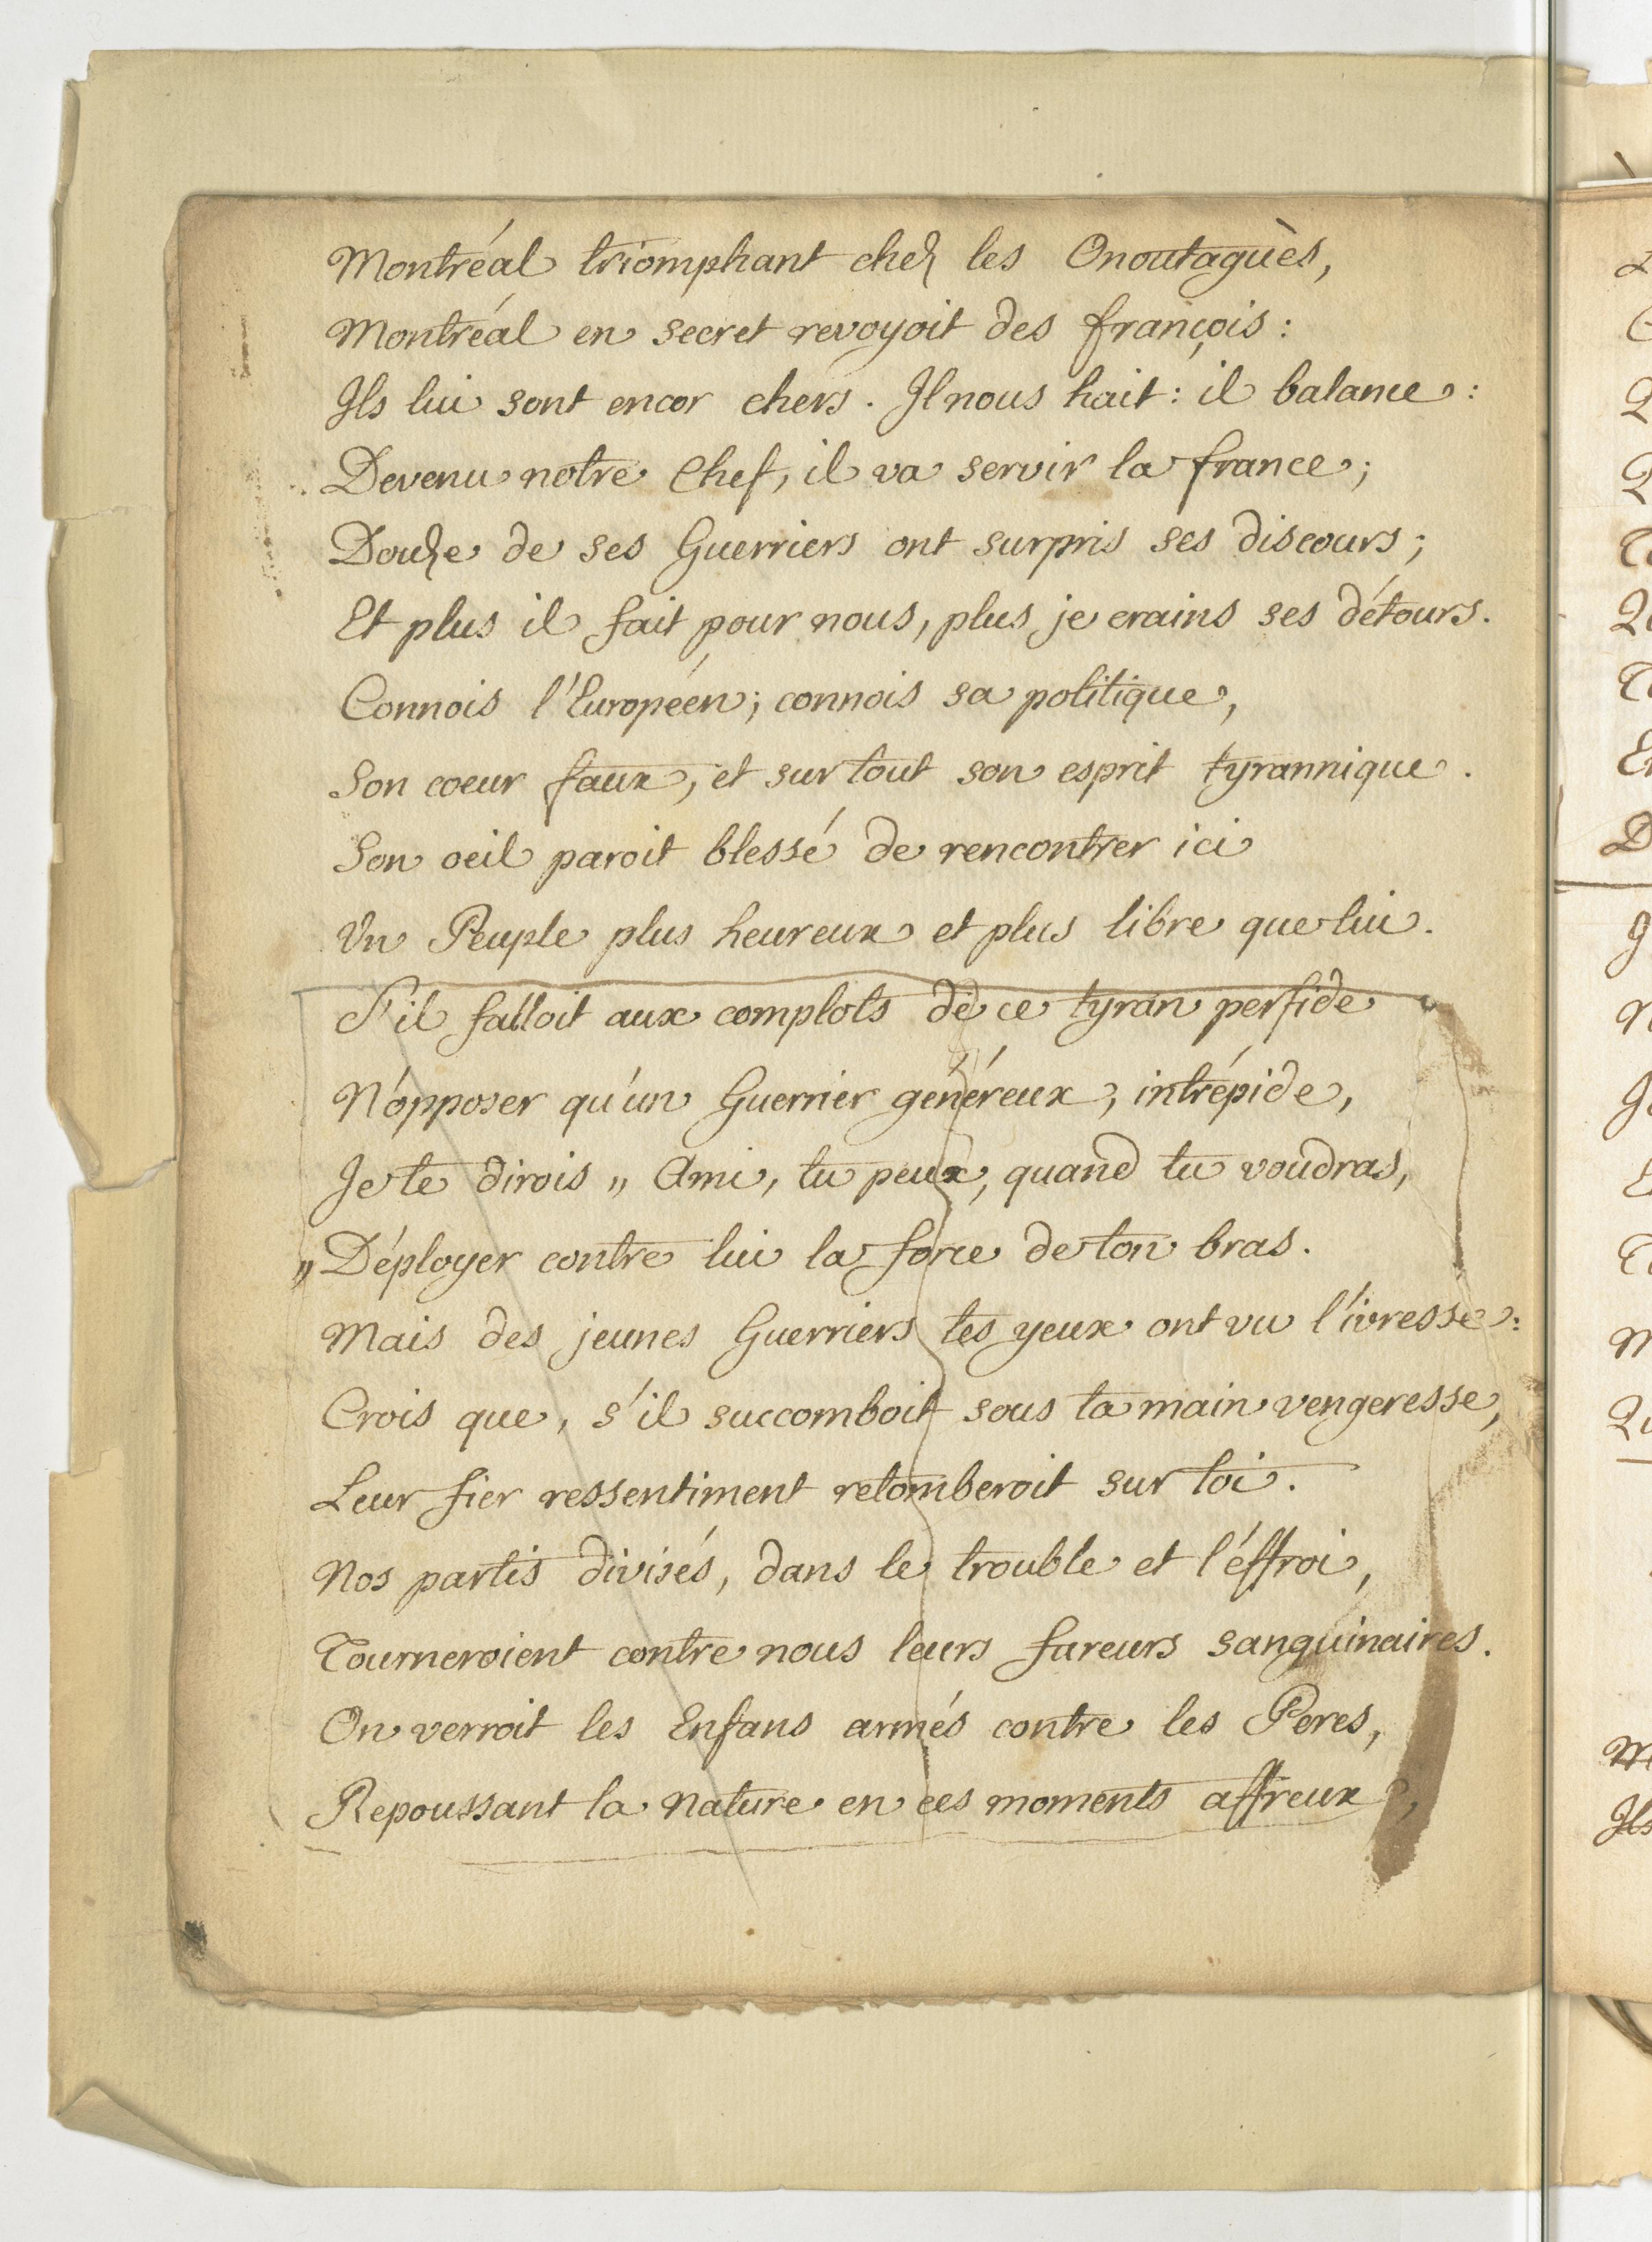 Montréal triomphant chez les Onoutagùès,
Montréal en secret revoyoit des françois :
Ils lui sont encor chers. Il nous hait : il balance :
Devenu notre Chef, il va servir la france ;
Douze de ses Guerriers ont surpris ses discours ;
Et plus il fait pour nous, plus je crains ses détours.
Connois l'Européen ; connois sa politique,
Son coeur faux, et sur tout son esprit tyrannique.
Son oeil paroit blessé de rencontrer ici
Un Peuple plus heureux et plus libre que lui.
S'il falloit aux complots de ce tyran perfide
N'opposer qu'un Guerrier généreux, intrépide,
Je te dirois „ Ami, tu peux, quand tu voudras,
„ Déployer contre lui la force de ton bras.
Mais des jeunes Guerriers tes yeux ont vu l'ivresse :
Crois que, s'il succomboit sous ta main vengeresse,
Leur fier ressentiment retomberoit sur toi.
Nos partis divisés, dans le trouble et l'éffroi,
Tourneroient contre nous leurs fureurs sanguinaires.
On verroit les Enfans armés contre les Peres,
Repoussant la Nature en ces moments affreux,